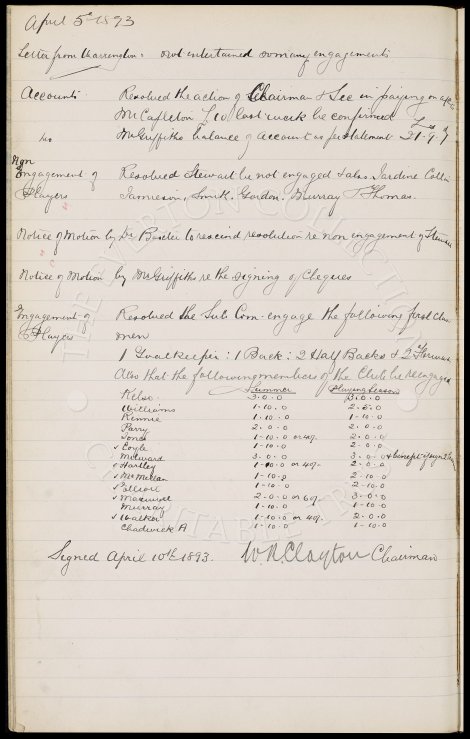 April 5th 1893
Letter from Warrington: not entertained so many engagements
Accounts Resolved the action of Chairman & Sec in paying on a/c
McCapleton £10 last week be confirmed
Do Mr Griffiths balance of account as per statement 21.9.9
Non
Engagement of Resolved Stewart be not engaged & also Jardine Collin
Players Jamieson, Smith, Gordon, Murray & Thomas.
Notice of Motion by Dr Baxter to rescind resolution re non engagement of Stewart
Notice of Motion by Mr Griffiths re the signing of Cheques
Engagement of Resolved the Sub Com. engage the following first class
Players men
1 Goalkeeper: 1 Back: 2 Half Backs & 2 Forwards
Also that the following members of the Club be reengaged
Summer Playing Season
Kelso 3.0.0 3.0.0
Williams 1-10.0 2.5.0
Rennie 1.10.0 1-10.0
Parry 2.0.0 2.0.0
Jones 1-10.0 or 40/- 2.0.0
✓ Coyle 1-10.0 2.0.0
Milward 3.0.0 3.0.0 & benefit
✓ Hartley 1-10.0 or 40/- 2-0.0
✓ McMillan 1-10.0 2.10.0
✓ Elliott 1-10.0 2-10.0
✓ Maxwell 2-0.0 or 60/- 3.0.0
Murray 1-10.0 1-10.0
✓ Walker 1-10.0 or 40/- 2.0.0
Chadwick A 1-10.0 1-10.0
Signed April 10th 1893. W.R. Clayton Chairman
THE EVERTON COLLECTION
CHARITABLE TRUST